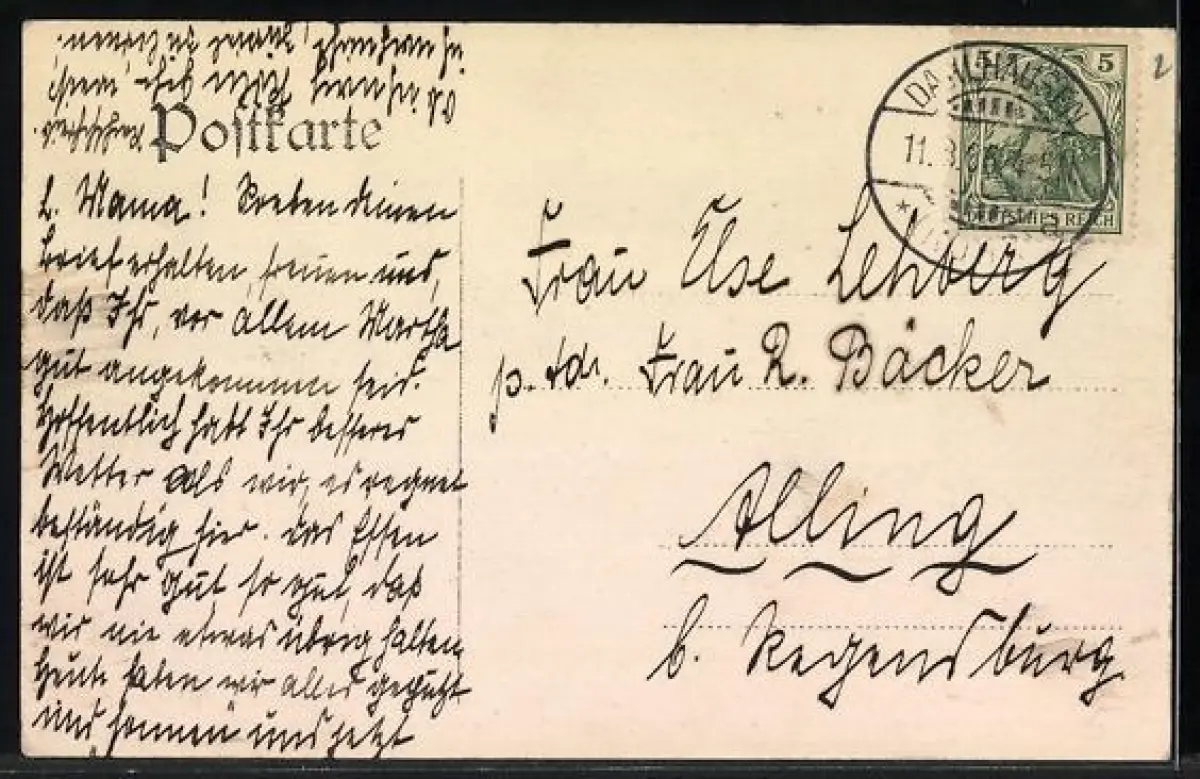 Postkarte
L. Mama! Soeben deinen
Brief erhalten, freuen uns,
daß Ihr, vor allem Martha
gut angekommen seid.
Hoffentlich habt Ihr besseres
Wetter als wir, es regnet
beständig hier. Das Essen
ist sehr gut so gut, daß
wir nie etwas übrig halten
Heute haben wir alles geputzt
und können uns jetzt
DAHLHAUSEN
11.8.
5
5
DEUTSCHES REICH
Frau Else Lehberg
p. Adr. Frau R. Bäcker
Alling
b. Regensburg
2